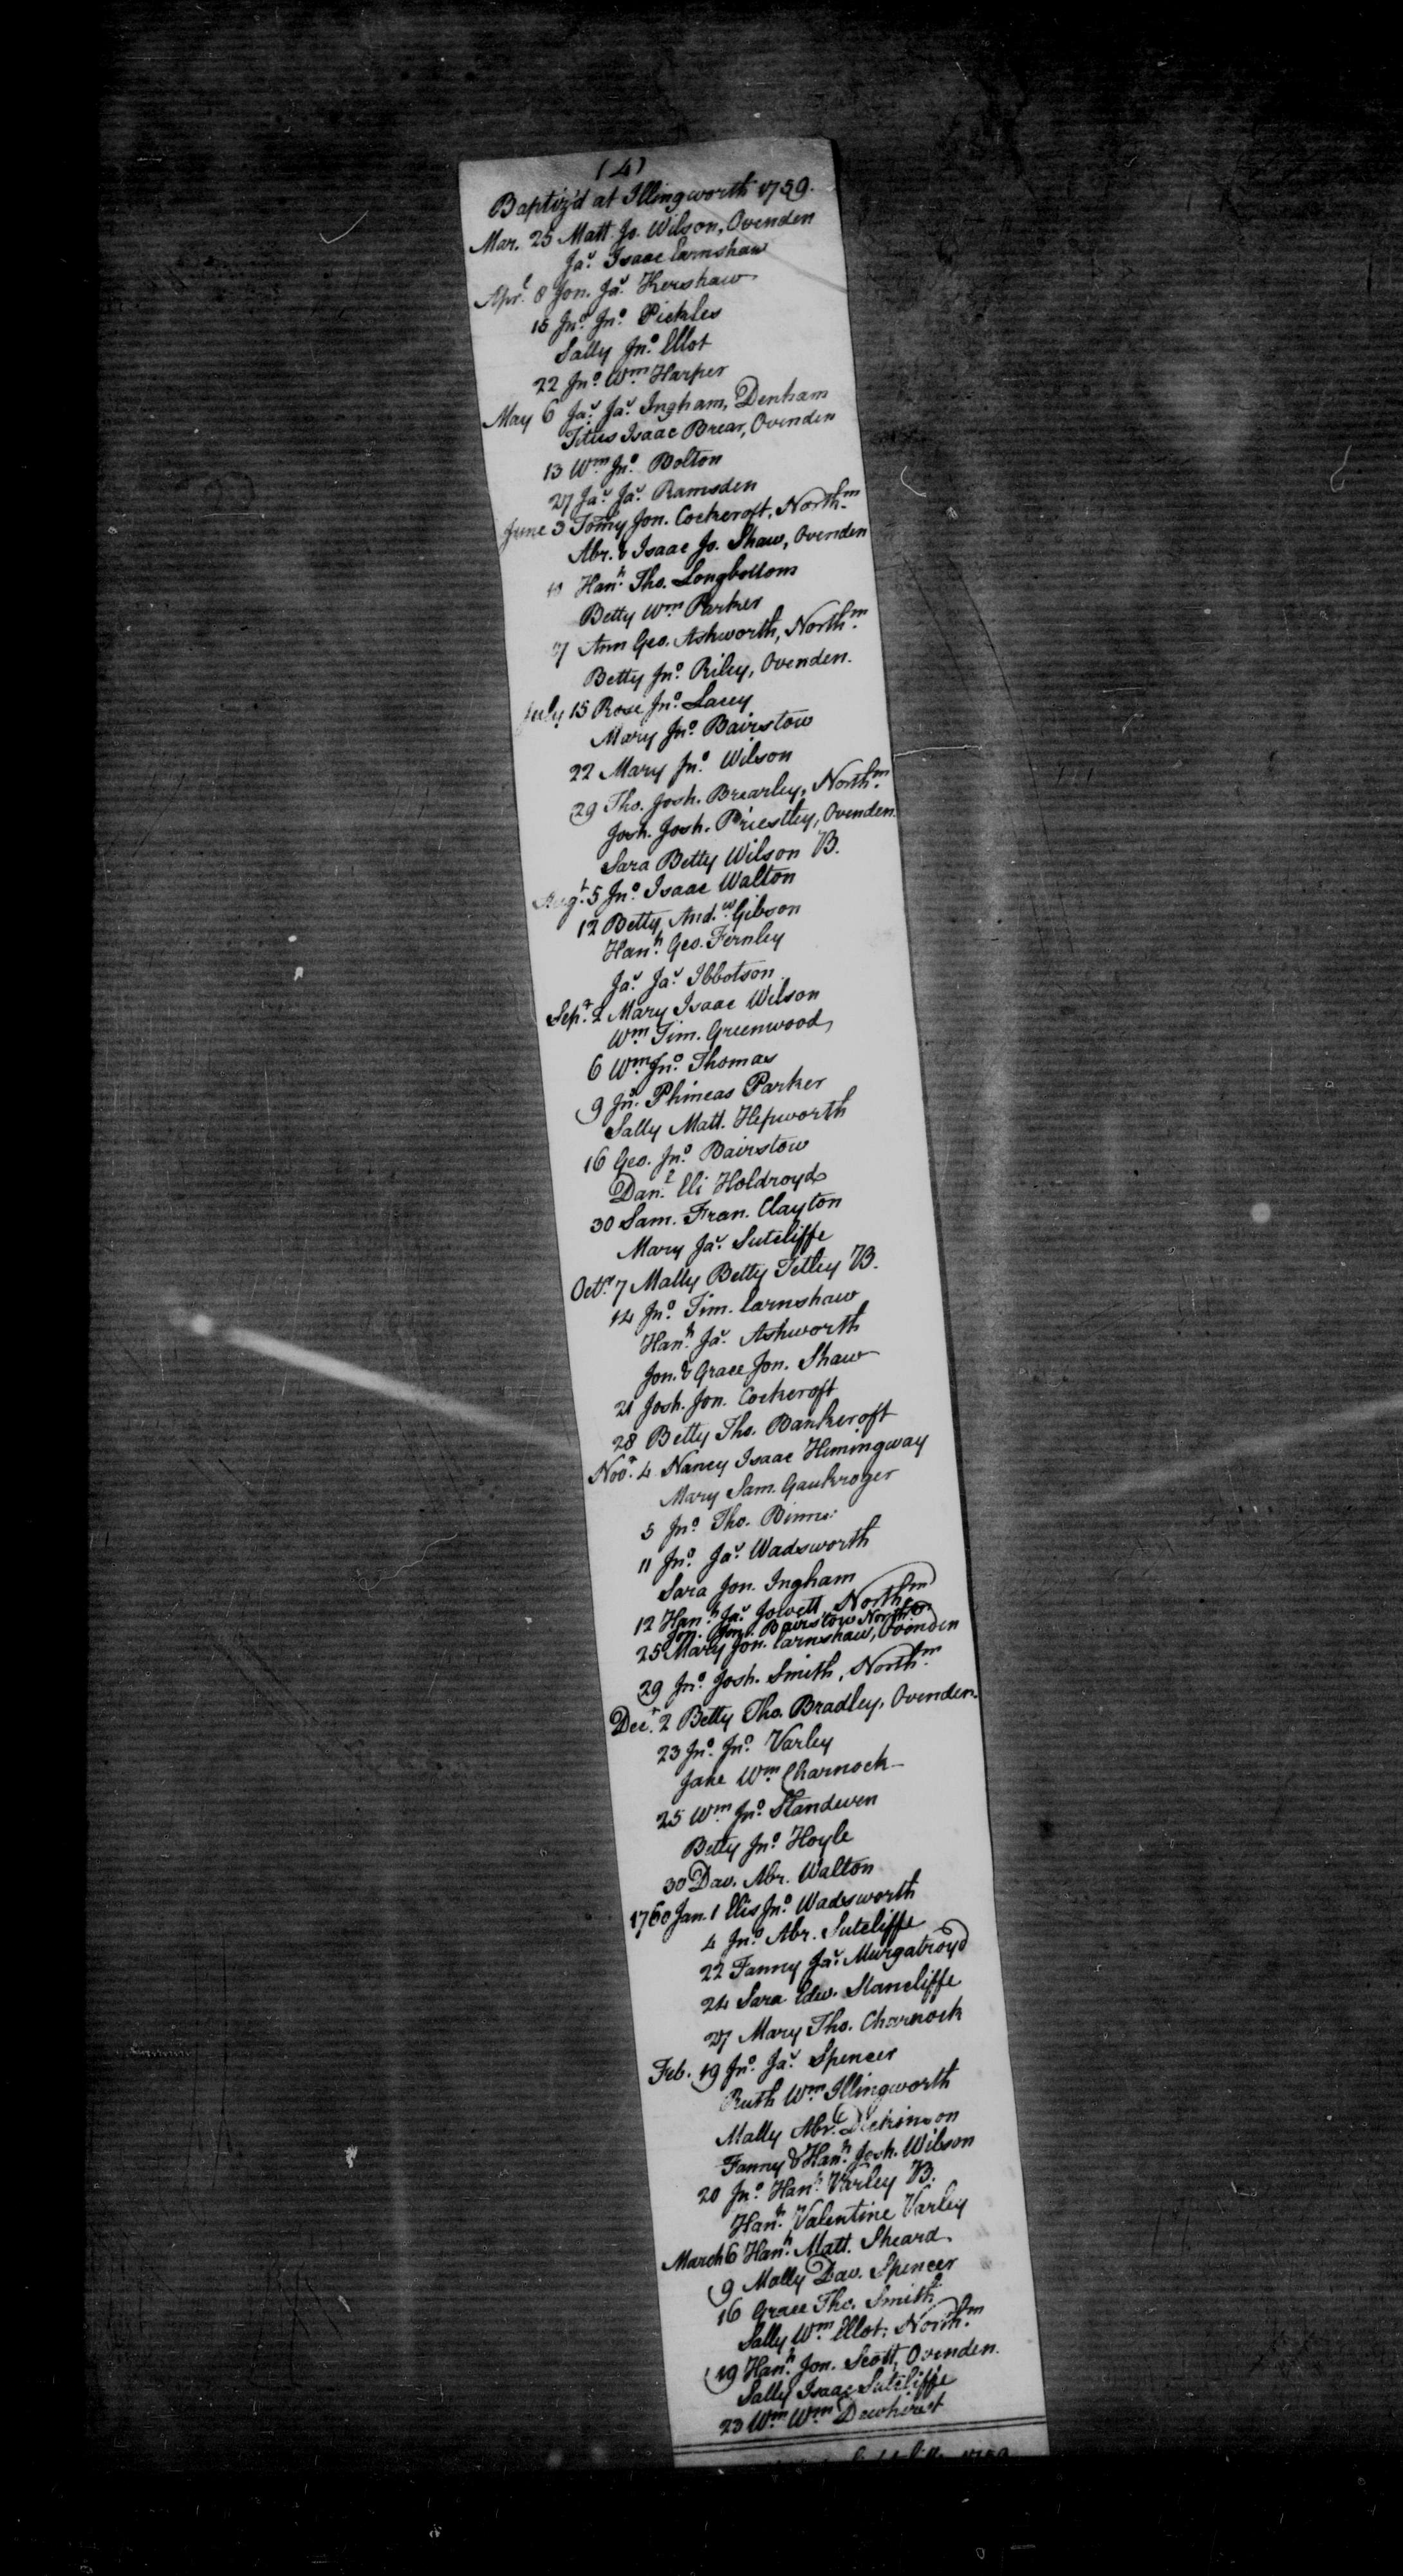 (4)
Baptiz'd at Illingworth 1759.
Mar. 25 Matt Jo. Wilson, Ovenden
Jas. Isaac Earnshaw
Aprl. 8 Jon. Jas. Kershaw
15 Jno. Jno. Pickles
Sally Jno. Ellot
22 Jno. Wm. Harper
May 6 Jas. Jas. Ingham, Denham
Titus Isaac Brear, Ovenden
13 Wm. Jno. Bolton
27 Jas. Jas. Ramsden
June 3 Tomy Jon. Cockcroft, Northm.
Abr. & Isaac Jo. Shaw, Ovenden
Hanh. Tho. Longbottom
Betty Wm Parker
Ann Geo. Ashworth, Northm.
Betty Jno. Riley, Ovenden.
July 15 Rose Jno. Lacey
Mary Jno. Bairstow
22 Mary Jno. Wilson
29 Tho. Josh. Brearley, Northm.
Josh. Josh. Priestley, Ovenden.
Sara Betty Wilson B.
Augt. 5 Jno. Isaac Walton
12 Betty Andw. Gibson
Hanh. Geo. Fernley
Jas. Jas. Ibbotson
Sepr. 2 Mary Isaac Wilson
Wm. Tim. Greenwood
6 Wm. Jno. Thomas
9 Jno. Phineas Parker
Sally Matt. Hepworth
16 Geo. Jno. Bairstow
Danl. Eli Holdroyd
30 Sam. Fran. Clayton
Mary Jas. Sutcliffe
Octr. 7 Mally Betty Tetley B.
14 Jno. Tim. Earnshaw
Hanh. Jas. Ashworth
Jon. & Grace Jon. Shaw
21 Josh. Jon. Cockcroft
28 Betty Tho. Bankcroft
Novr. 4 Nancy Isaac Hemingway
Mary Sam. Gaukroger
5 Jno. Tho. Binns
11 Jno. Jas. Wadsworth
Sara Jon. Ingham
12 Hanh. Jas. Jowett, Northm
Jon. Jon. Bairstow Northm
25 Mary Jon. Earnshaw, Ovenden
29 Jno. Josh. Smith, Northm.
Decr. 2 Betty Tho. Bradley, Ovenden.
23 Jno. Jno. Varley
Jane Wm. Charnock
25 Wm. Jno. Standeven
Betty Jno. Hoyle
30 Dav. Abr. Walton
1760 Jan. 1 Elis Jno. Wadsworth
4 Jno. Abr. Sutcliffe
22 Fanny Jas. Murgatroyd
24 Sara Edw. Stancliffe
27 Mary Tho. Charnock
Feb. 19 Jno. Jas. Spencer
Ruth Wm. Illingworth
Mally Abr. Dickinson
Fanny & Hanh. Josh. Wilson
20 Jno. Hanh. Varley B.
Hanh. Valentine Varley
March 6 Hanh. Matt. Sheard
9 Mally Dav. Spencer
16 Grace Tho. Smith
Sally Wm. Ellot, Northm.
19 Hanh. Jon. Scott, Ovenden.
Sally Isaac Sutcliffe
23 Wm. Wm. Dewhirst